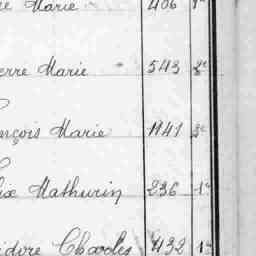 Marie 406 1e
erre Marie 543 2e
nçois Marie 1141 3e
ix Mathurin 236 1e
idore Charles 432 1e